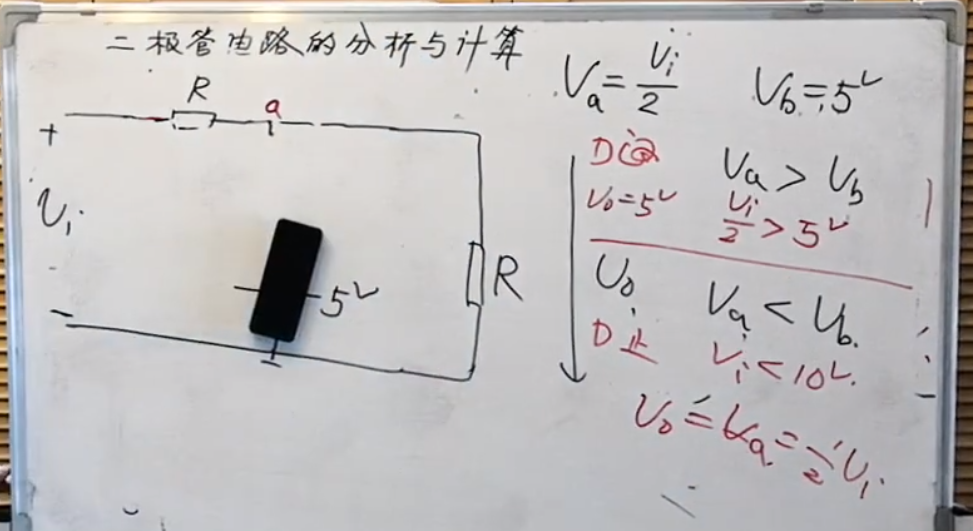 二极管电路的分析与计算
R
a
+
Vi
-
5V
R
Va = Vi/2
Vb = 5V
D通
Va > Vb
V0 = 5V
Vi/2 > 5V
U0
Va < Ub.
D止
Vi < 10V.
U0 = Ua = 1/2 Ui